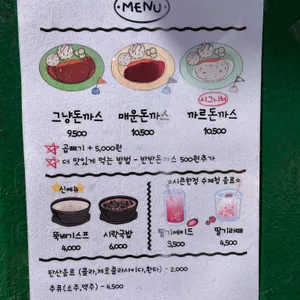 MENU
그냥돈까스
매운돈까스
시그니처
까르돈까스
9,500
10,500
10,500
곱빼기 + 5,000원
더 맛있게 먹는 방법 - 반반돈까스 500원추가
신메뉴
시즌한정 수제청 음료
뚝배기스프
시락국밥
딸기에이드
딸기라떼
4,000
6,000
3,500
4,500
탄산음료 (콜라,제로콜라,사이다,환타) - 2,000
주류(소주,맥주) - 4,500